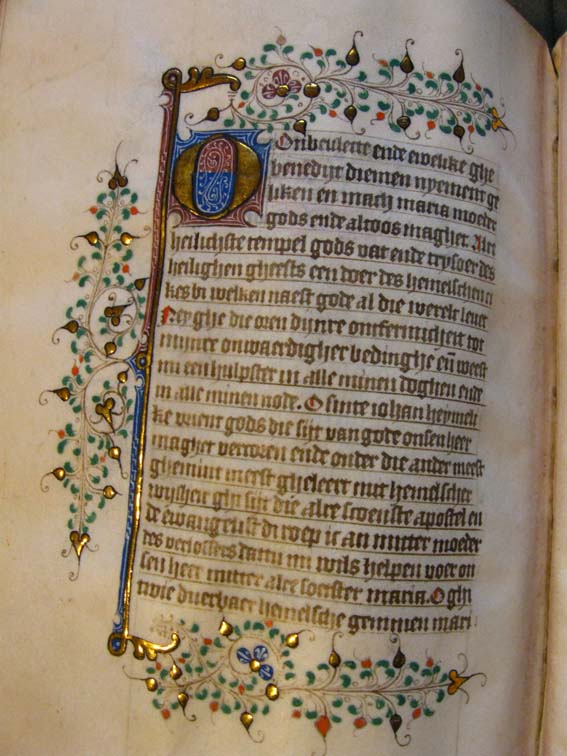 O Onbeulecte ende ewelike ghe
benedijt diemen nyement ge
liken en mach maria moeder
gods ende altoos magher. Alre
heilichste tempel gods vat ende trysoer des
heilighen gheests een doer des hemelschen ri
kes bi welken naest gode al die werelt leuet
Neyghe die oren dijnre ontfermicheit tot
minre onwaerdigher bedinghe en̄ weest
mi een hulpster in alle minen doghen ende
in alle minen node. O sinte iohan heymeli
ke vrient gods die sijt van gode onsen heer
magher vercoren ende onder die ander meest
ghemint meest gheleert mit hemelscher
wijsheit ghi sijt die alre scoenste apostel en
de ewangelist di roep ic an mitter moeder
des verlossers dattu mi wils helpen voer on
sen heer mitter alre soetster maria. O ghi
twie duerbaer hemelsche gemmen mari